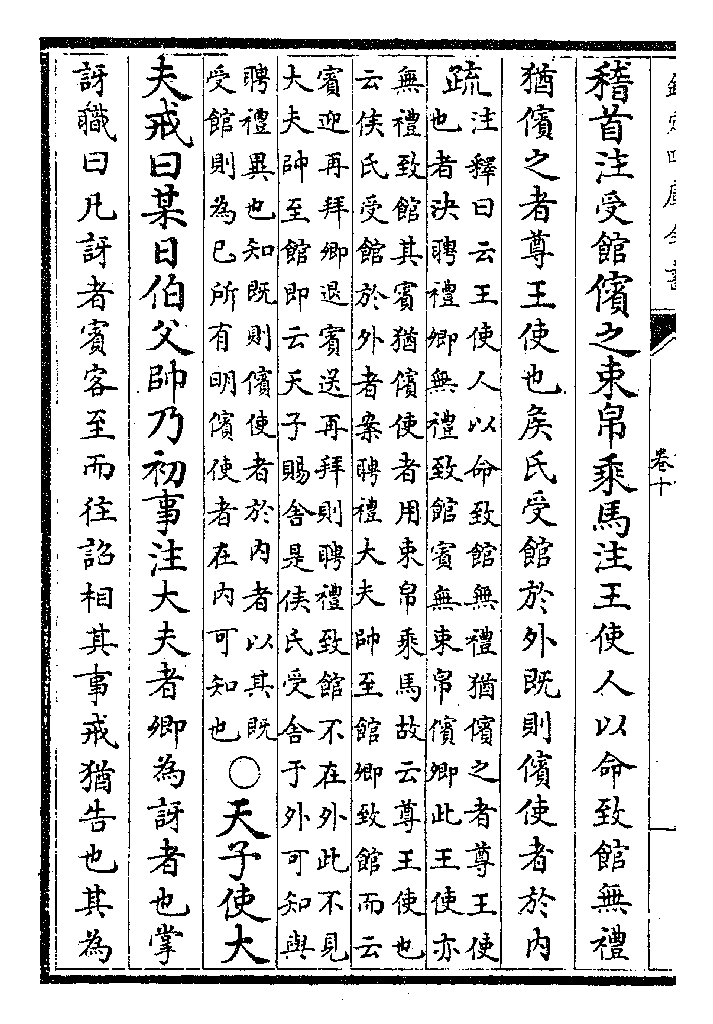 欽定四庫全書
卷十
稽首注受館儐之束帛乘馬注王使人以命致館無禮
猶儐之者尊王使也矦氏受館於外既則儐使者於内
疏注釋曰云王使人以命致館無禮猶儐之者尊王使
也者決聘禮卿無禮致館賓無束帛儐卿此王使亦
無禮致館其賓猶儐使者用束帛乘馬故云尊王使也
云侯氏受館於外者案聘禮大夫帥至館卿致館而云
賓迎再拜卿退賓送再拜則聘禮致館不在外此不見
大夫帥至館即云天子賜舍是侯氏受舍于外可知與
聘禮異也知既則儐使者於内者以其既
受館則為已所有明儐使者在内可知也
○天子使大
夫戒曰某日伯父帥乃初事注大夫者卿為訝者也掌
訝職曰凡訝者賓客至而往詔相其事戒猶告也其為